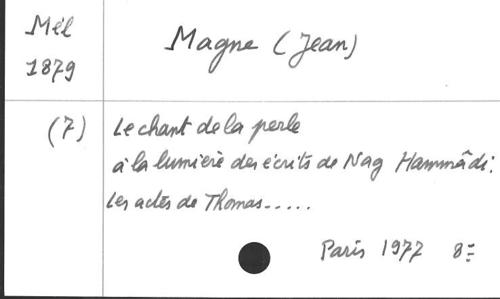 Mél
1879
Magne (Jean)
(7)
Le chant de la perle
à la lumière des écrits de Nag Hammâdi:
Les actes de Thomas.....
Paris 1977 8=